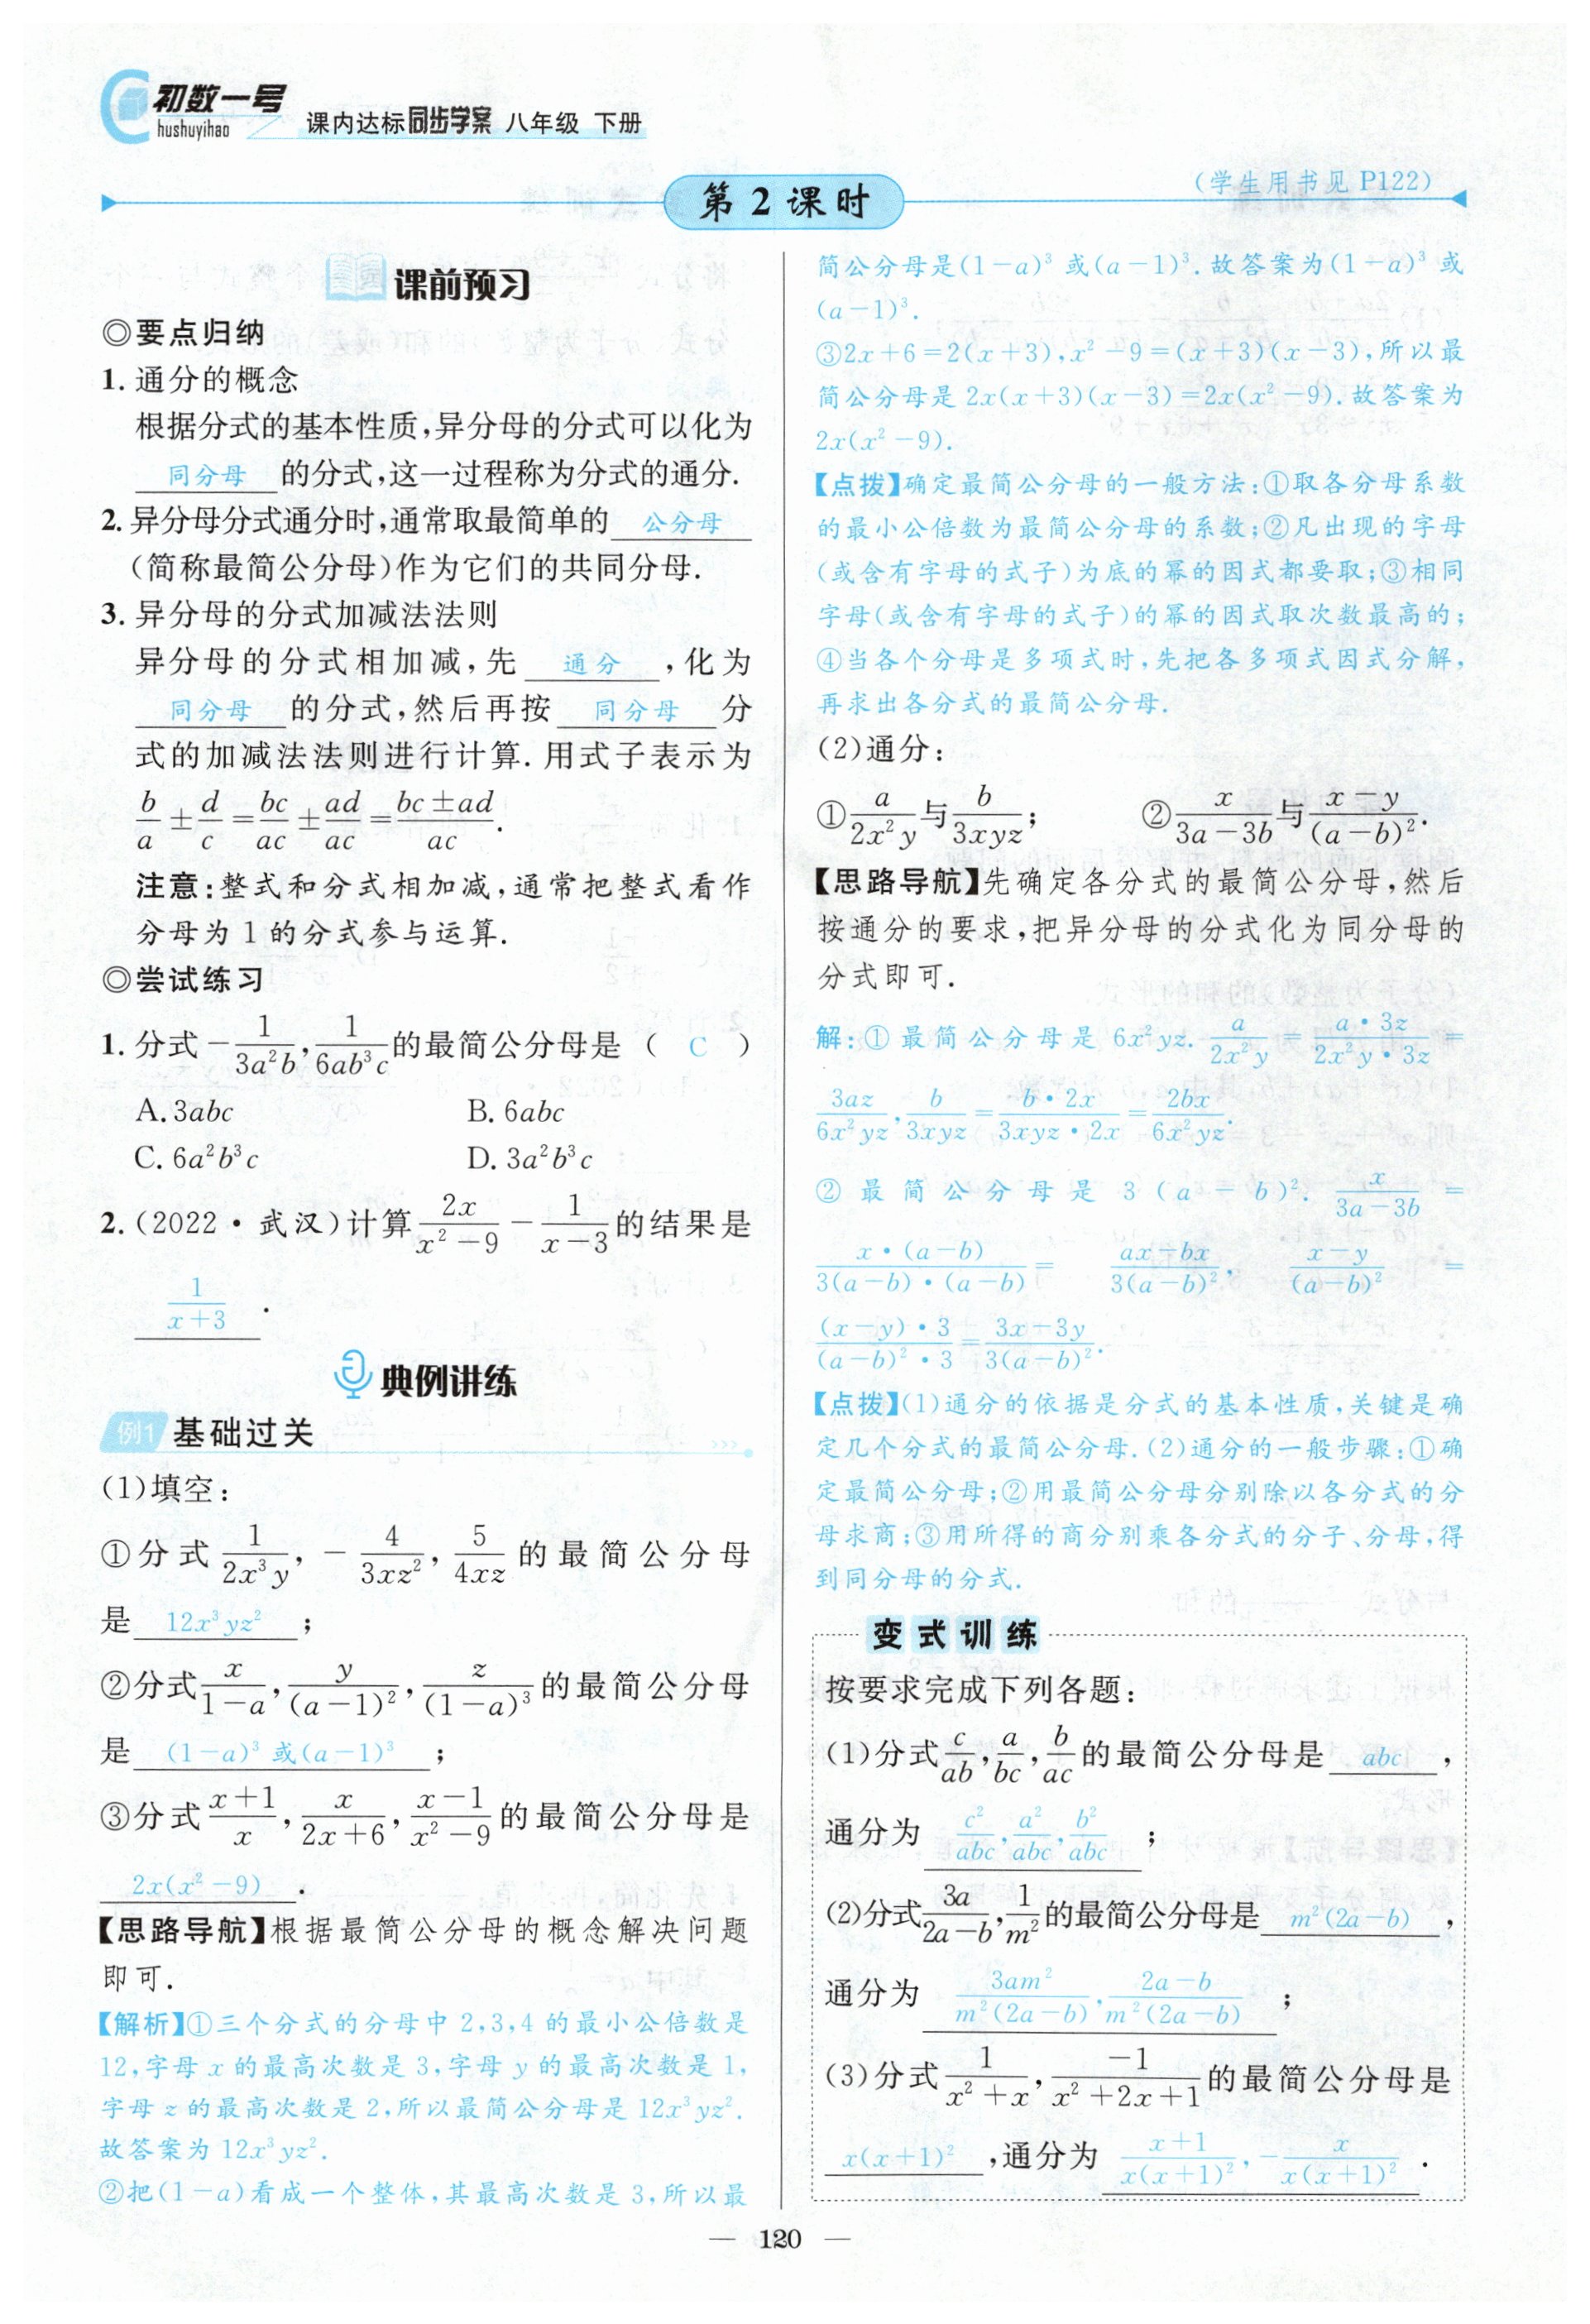 初数一号
hushuyihao
课内达标同步学案 八年级 下册
(学生用书见 P122)
第 2 课时
课前预习
◎要点归纳
1. 通分的概念
根据分式的基本性质,异分母的分式可以化为
同分母 的分式,这一过程称为分式的通分.
2. 异分母分式通分时,通常取最简单的 公分母
(简称最简公分母)作为它们的共同分母.
3. 异分母的分式加减法法则
异分母的分式相加减,先 通分 ,化为
同分母 的分式,然后再按 同分母 分
式的加减法法则进行计算. 用式子表示为
b/a ± d/c = bc/ac ± ad/ac = (bc±ad)/ac.
注意:整式和分式相加减,通常把整式看作
分母为 1 的分式参与运算.
◎尝试练习
1. 分式 −1/(3a²b), 1/(6ab³c) 的最简公分母是 ( C )
A. 3abc B. 6abc
C. 6a²b³c D. 3a²b³c
2. (2022·武汉)计算 2x/(x²−9) − 1/(x−3) 的结果是
1/(x+3) .
典例讲练
例1 基础过关
(1)填空:
①分式 1/(2x³y), −4/(3xz²), 5/(4xz) 的最简公分母
是 12x³yz² ;
②分式 x/(1−a), y/(a−1)², z/(1−a)³ 的最简公分母
是 (1−a)³ 或(a−1)³ ;
③分式 (x+1)/x, x/(2x+6), (x−1)/(x²−9) 的最简公分母是
2x(x²−9) .
【思路导航】根据最简公分母的概念解决问题
即可.
【解析】①三个分式的分母中 2,3,4 的最小公倍数是
12,字母 x 的最高次数是 3,字母 y 的最高次数是 1,
字母 z 的最高次数是 2,所以最简公分母是 12x³yz².
故答案为 12x³yz².
②把(1−a)看成一个整体,其最高次数是 3,所以最
简公分母是(1−a)³ 或(a−1)³. 故答案为(1−a)³ 或
(a−1)³.
③2x+6=2(x+3),x²−9=(x+3)(x−3),所以最
简公分母是 2x(x+3)(x−3)=2x(x²−9). 故答案为
2x(x²−9).
【点拨】确定最简公分母的一般方法:①取各分母系数
的最小公倍数为最简公分母的系数;②凡出现的字母
(或含有字母的式子)为底的幂的因式都要取;③相同
字母(或含有字母的式子)的幂的因式取次数最高的;
④当各个分母是多项式时,先把各多项式因式分解,
再求出各分式的最简公分母.
(2)通分:
①a/(2x²y) 与 b/(3xyz); ②x/(3a−3b) 与 (x−y)/(a−b)².
【思路导航】先确定各分式的最简公分母,然后
按通分的要求,把异分母的分式化为同分母的
分式即可.
解:①最简公分母是 6x²yz. a/(2x²y) = (a·3z)/(2x²y·3z) =
3az/(6x²yz), b/(3xyz) = (b·2x)/(3xyz·2x) = 2bx/(6x²yz).
②最简公分母是 3(a−b)². x/(3a−3b) =
x·(a−b)/(3(a−b)·(a−b)) = (ax−bx)/(3(a−b)²), (x−y)/(a−b)² =
(x−y)·3/((a−b)²·3) = (3x−3y)/(3(a−b)²).
【点拨】(1)通分的依据是分式的基本性质,关键是确
定几个分式的最简公分母.(2)通分的一般步骤:①确
定最简公分母;②用最简公分母分别除以各分式的分
母求商;③用所得的商分别乘各分式的分子、分母,得
到同分母的分式.
变式训练
按要求完成下列各题:
(1)分式 c/ab, a/bc, b/ac 的最简公分母是 abc ,
通分为 c²/abc, a²/abc, b²/abc ;
(2)分式 3a/(2a−b), 1/m² 的最简公分母是 m²(2a−b) ,
通分为 3am²/(m²(2a−b)), (2a−b)/(m²(2a−b)) ;
(3)分式 1/(x²+x), −1/(x²+2x+1) 的最简公分母是
x(x+1)² ,通分为 (x+1)/(x(x+1)²), −x/(x(x+1)²) .
— 120 —